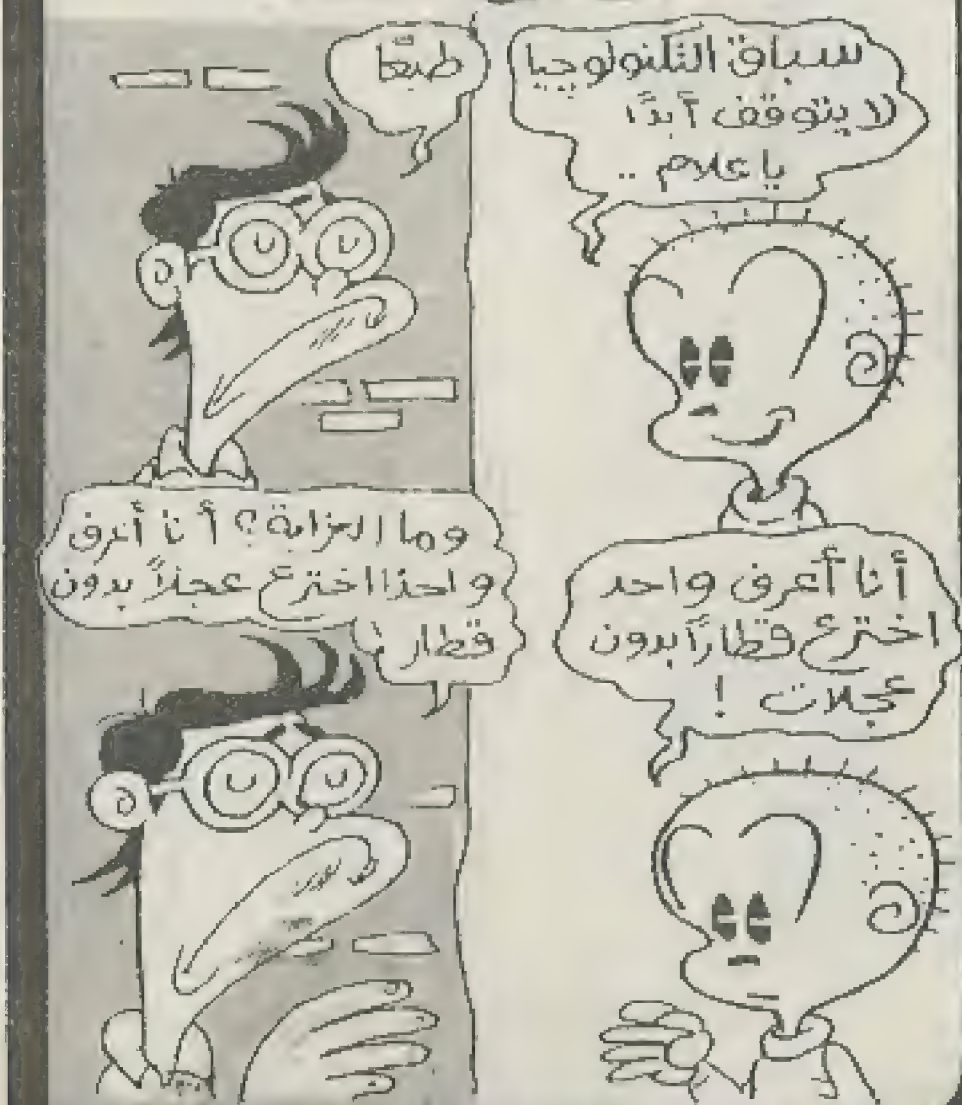 سباق التكنولوجيا
لا يتوقف أبدًا
يا علام ..
طبعًا
أنا أعرف واحد
اخترع قطارًا بدون
عجلات !
وما الغرابة؟ أنا أعرف
واحدًا اخترع عجلاً بدون
قطار